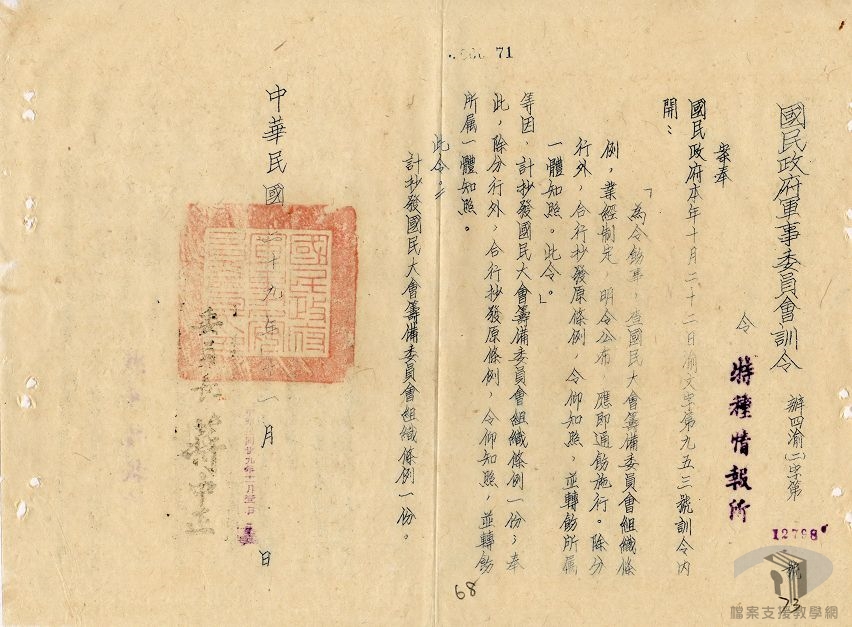 國民政府軍事委員會訓令 辦四渝(二)字第12798號
令 特種情報所
案奉
國民政府本年十月二十二日渝文字第九五三號訓令內
開：
「為令飭事，查國民大會籌備委員會組織條
例，業經制定，明令公布，應即通飭施行。除分
行外，合行抄發原條例，令仰知照，並轉飭所屬
一體知照。此令。」
等因，計抄發國民大會籌備委員會組織條例一份；奉
此，除分行外，合行抄發原條例，令仰知照，並轉飭
所屬一體知照。
此令。
計抄發國民大會籌備委員會組織條例一份。
中華民國 十九年 一月 日
委員長 蔣中正
71
68
73
檔案支援教學網